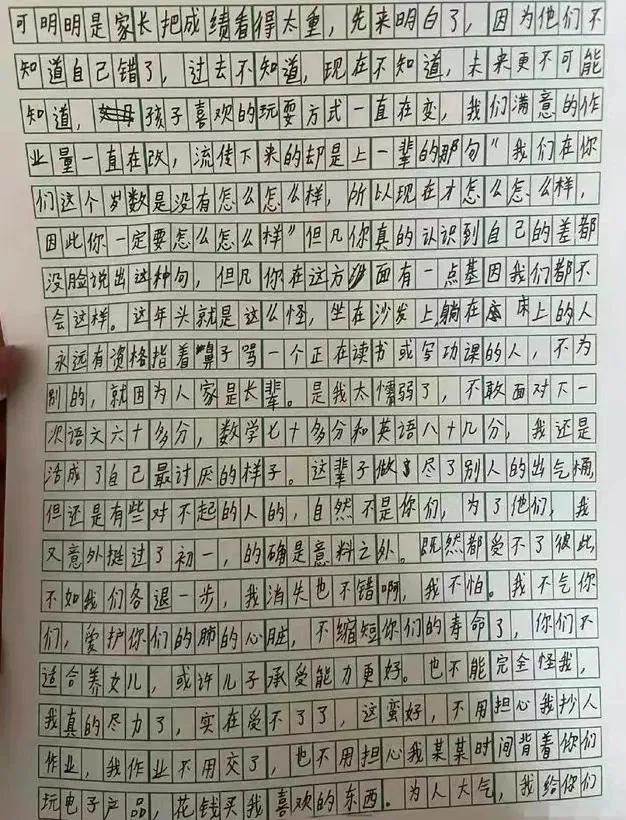 可明明是家长把成绩看得太重，先来明白了，因为他们不
知道自己错了，过去不知道，现在不知道，未来更不可能
知道，孩子喜欢的玩耍方式一直在变，我们满意的作
业量一直在改，流传下来的却是上一辈的那句“我们在你
们这个岁数是没有怎么怎么样，所以现在才怎么怎么样，
因此你一定要怎么怎么样”但凡你真的认识到自己的差都
没脸说出这种句，但凡你在这方面有一点基因我们都不
会这样。这年头就是这么怪，坐在沙发上躺在床上的人
永远有资格指着鼻子骂一个正在读书或写功课的人，不为
别的，就因为人家是长辈。是我太懦弱了，不敢面对下一
次语文六十多分，数学七十多分和英语八十几分，我还是
活成了自己最讨厌的样子。这辈子做尽了别人的出气桶，
但还是有些对不起的人的，自然不是你们，为了他们，我
又意外挺过了初一，的确是意料之外。既然都受不了彼此
不如我们各退一步，我消失也不错啊，我不怕。我不气你
们，爱护你们的肺的心脏，不缩短你们的寿命了，你们不
适合养女儿，或许儿子承受能力更好。也不能完全怪我，
我真的尽力了，实在受不了了，这蛮好，不用担心我抄人
作业，我作业不用交了，也不用担心我某某时间背着你们
玩电子产品，花钱买我喜欢的东西。为人大气，我给你们